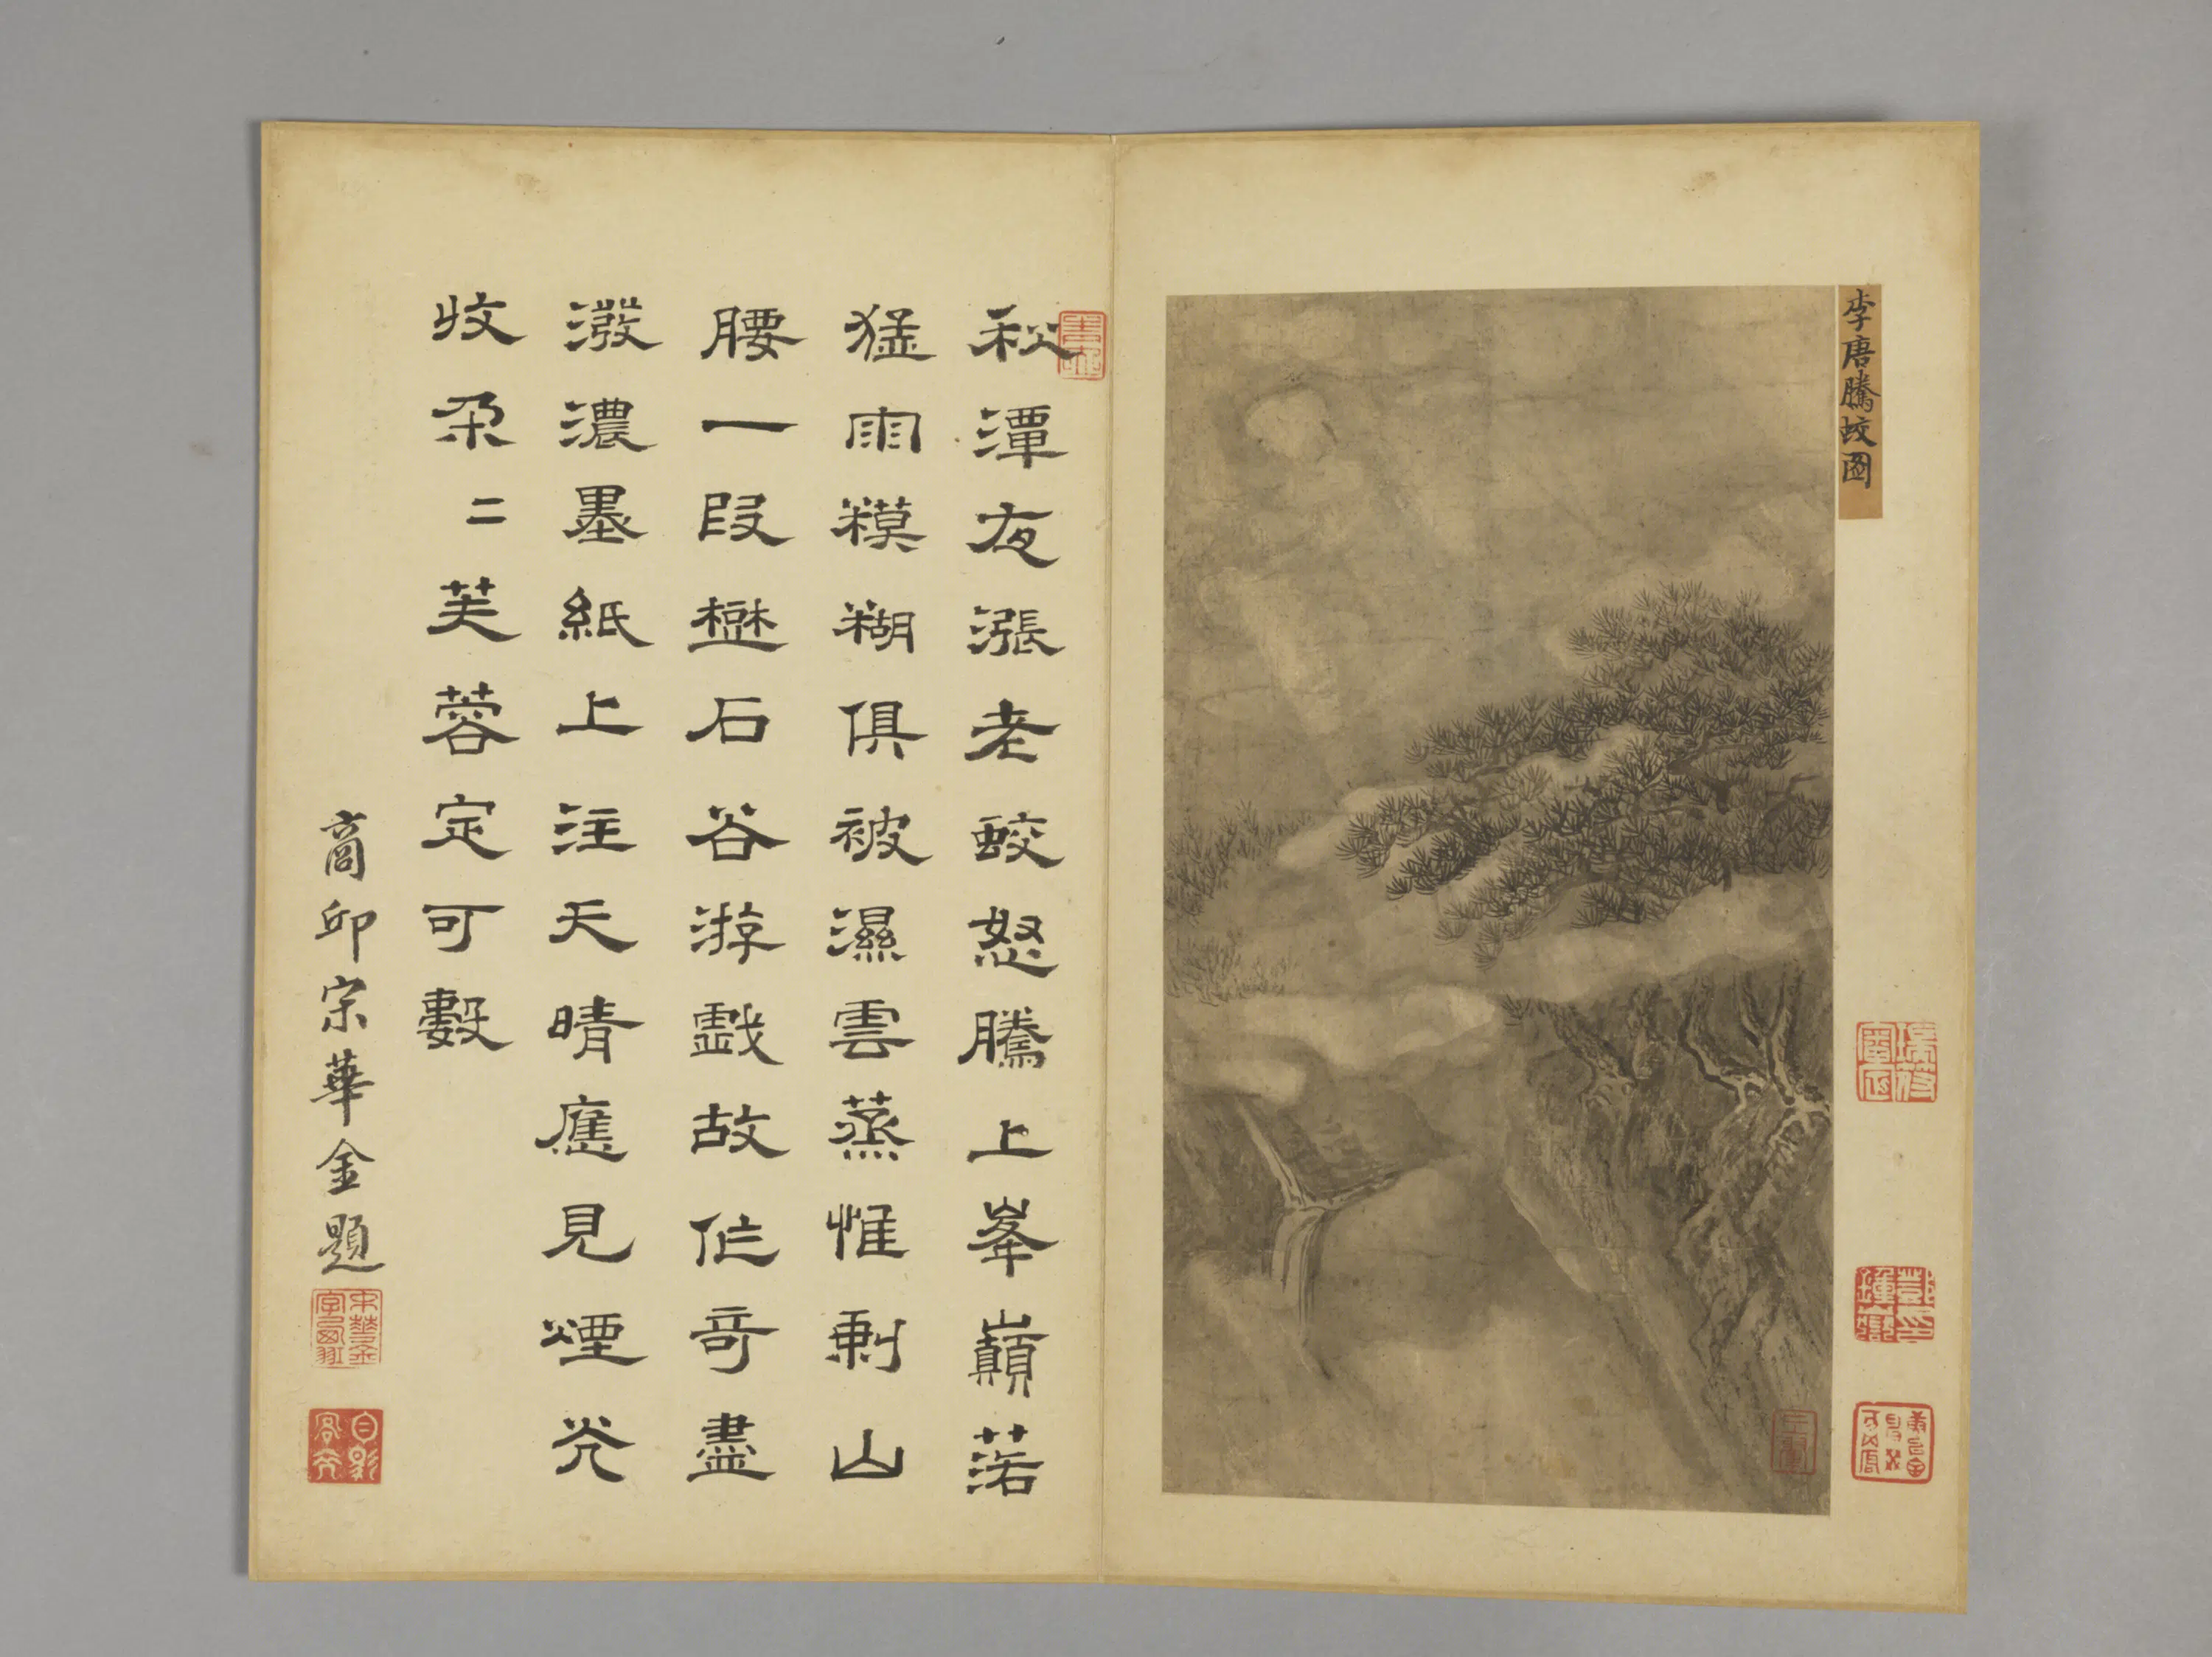 李唐騰蛟圖
秋潭夜漲老蛟怒騰上峯巔菭
猛雨糢糊俱被濕雲蒸惟剰山
腰一段礬石谷游戲故作奇盡
潑濃墨紙上注天晴應見煙光
收朶二芙蓉定可數
商邱宗華金題